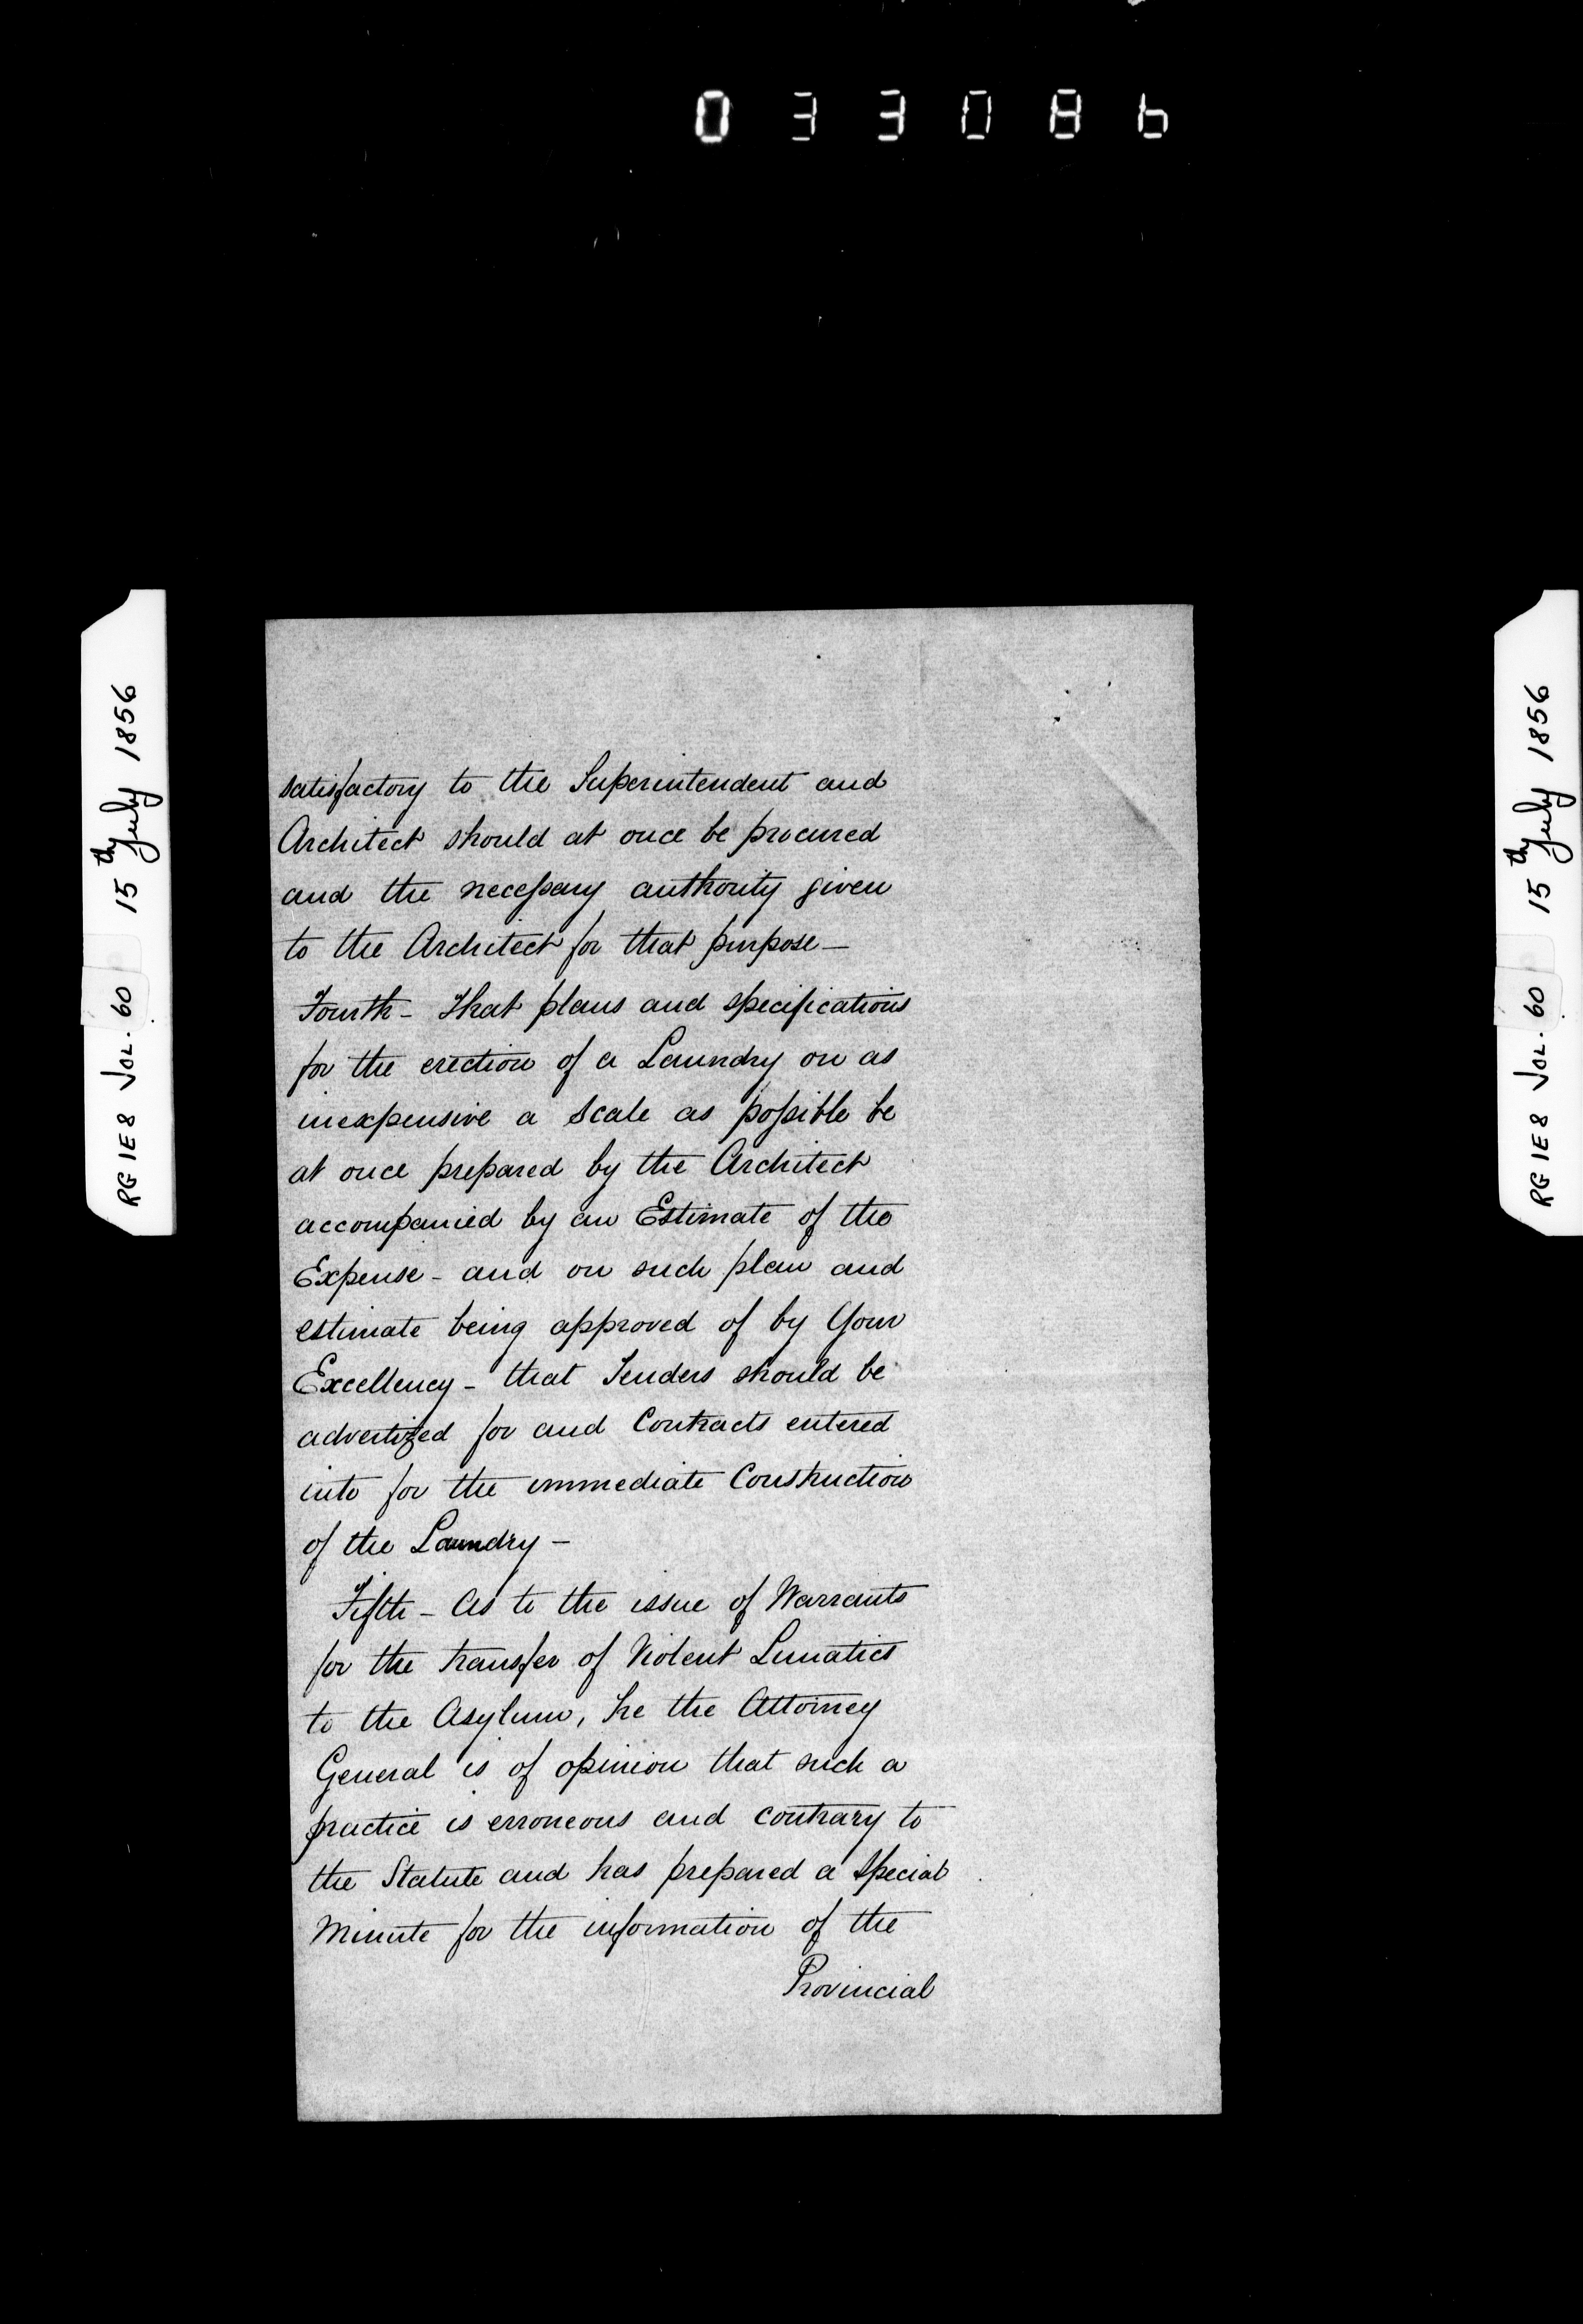 033086
RG 1E8 VOL. 60 15th July 1856
satisfactory to the Superintendent and
Architect should at once be procured
and the necessary authority given
to the Architect for that purpose —
Fourth - That plans and specifications
for the erection of a Laundry on as
inexpensive a scale as possible be
at once prepared by the Architect
accompanied by an Estimate of the
Expense - and on such plan and
estimate being approved of by Your
Excellency - that Tenders should be
advertized for and Contracts entered
into for the immediate Construction
of the Laundry —
Fifth - As to the issue of Warrants
for the transfer of Violent Lunatics
to the Asylum, he the Attorney
General is of opinion that such a
practice is erroneous and contrary to
the Statute and has prepared a special
Minute for the information of the
Provincial
RG 1E8 VOL. 60 15th July 1856